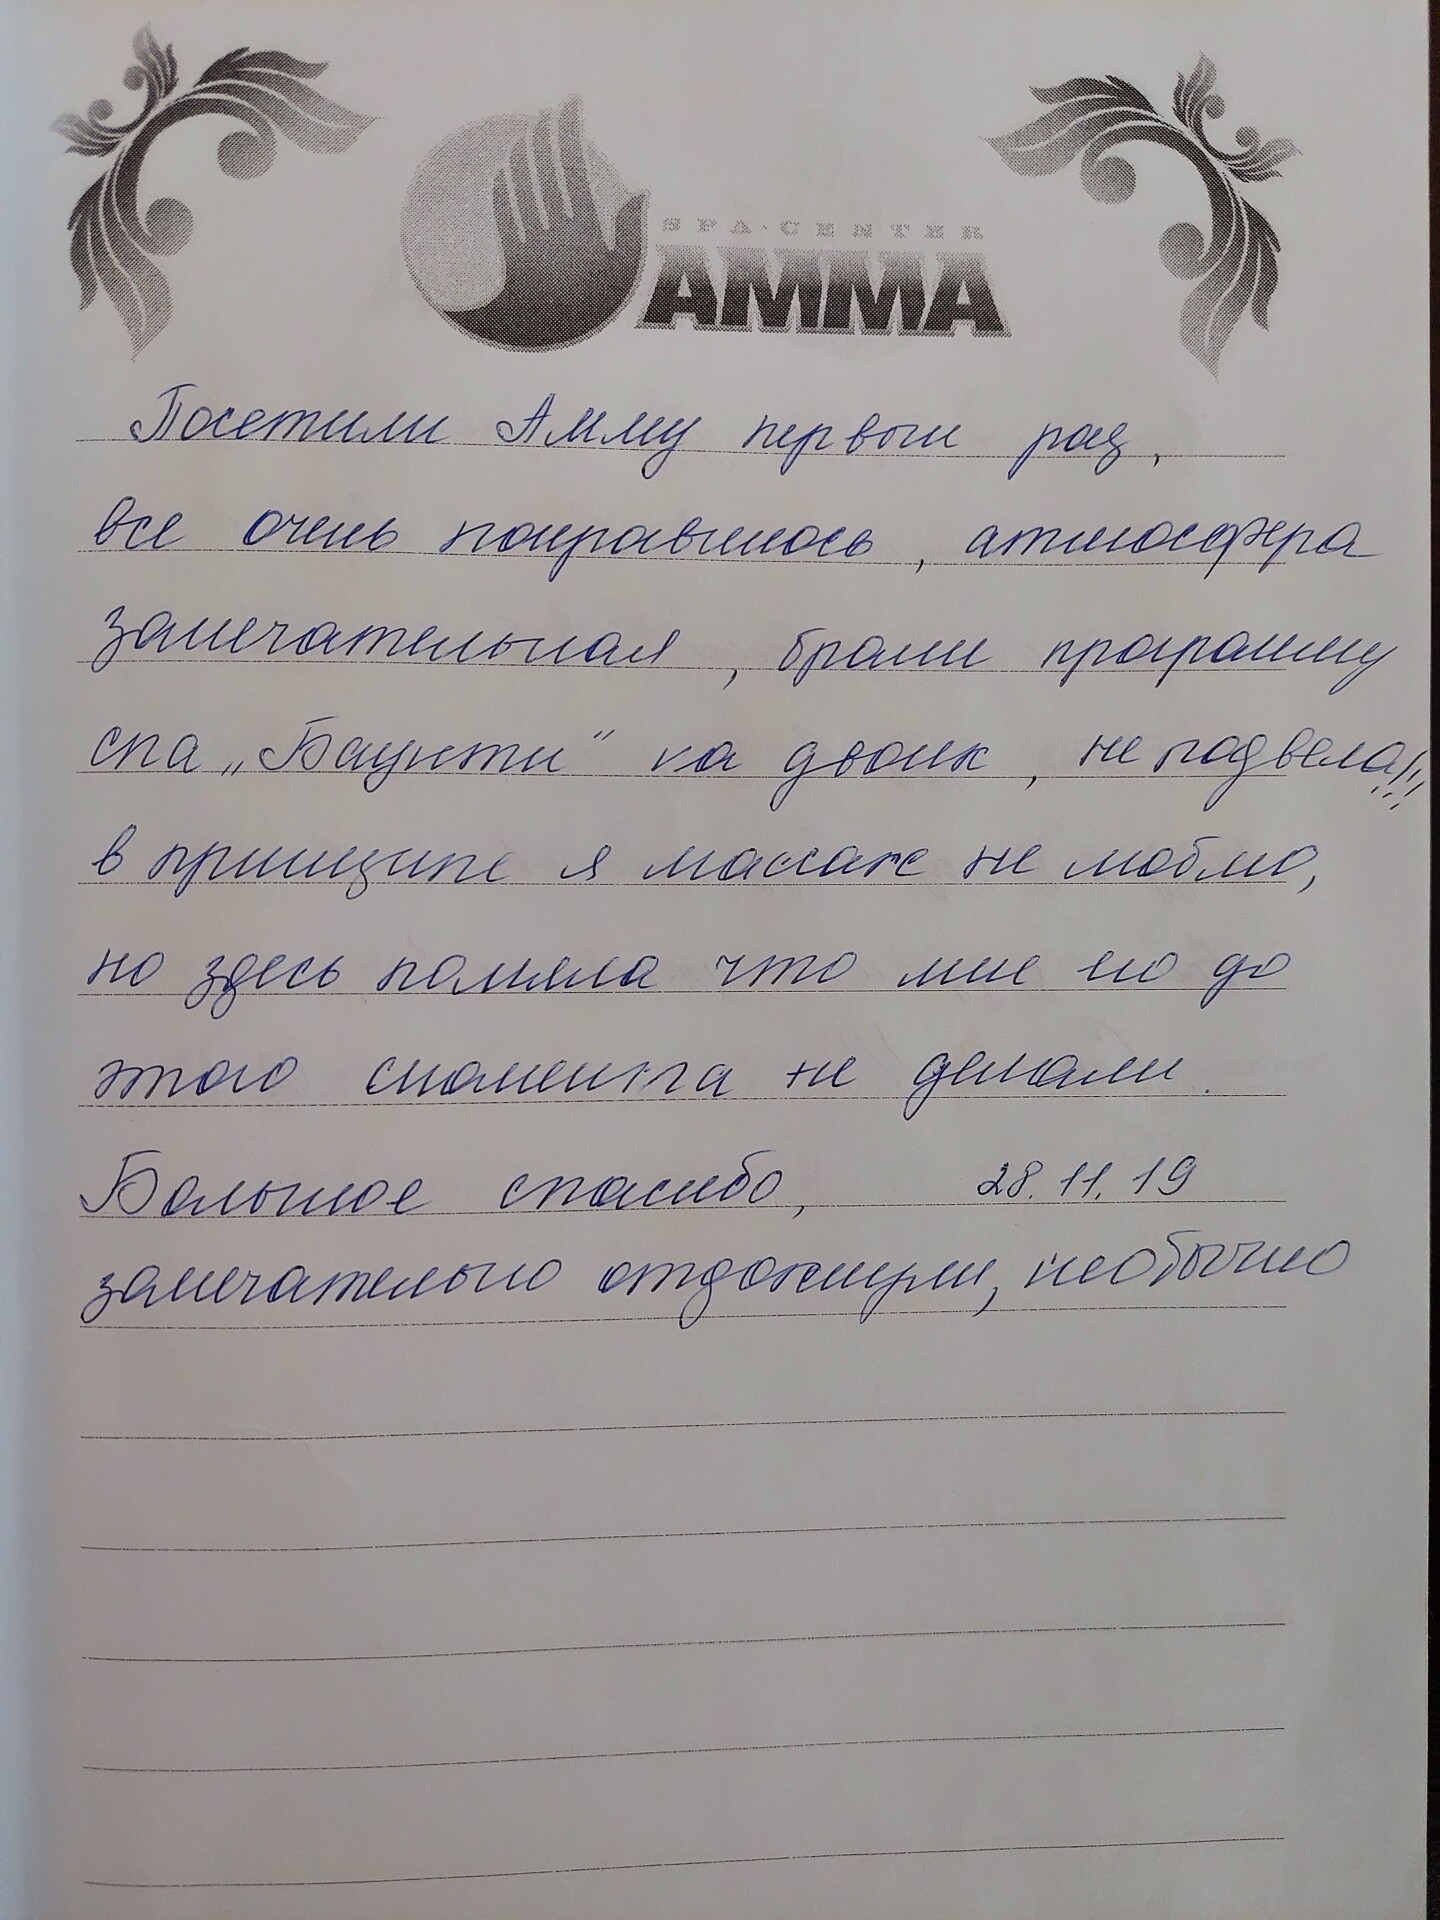 SPA-CENTER
AMMA
Посетили Амму первый раз,
все очень понравилось, атмосфера
замечательная, брали программу
спа „Баунти“ на двоих, не подвела!!!
в принципе я массаж не люблю,
но здесь поняла что мне его до
этого момента не делали.
Большое спасибо, 28.11.19
замечательно отдохнули, необычно